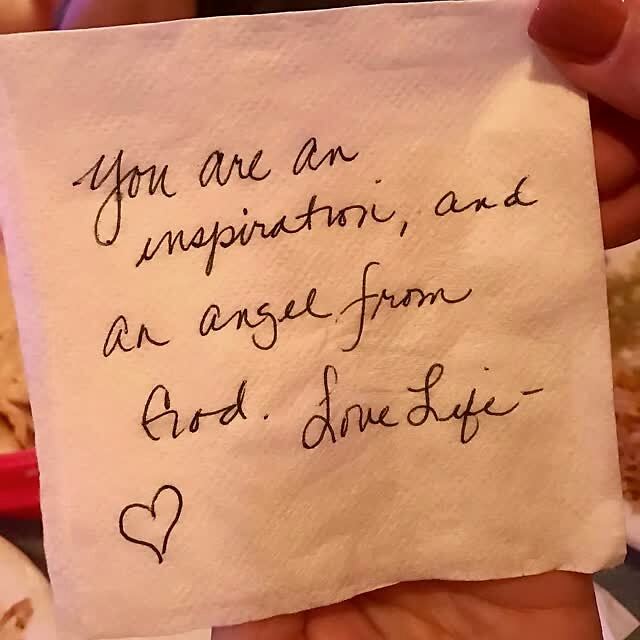 You are an
inspiration, and
an angel from
God. Love Life-